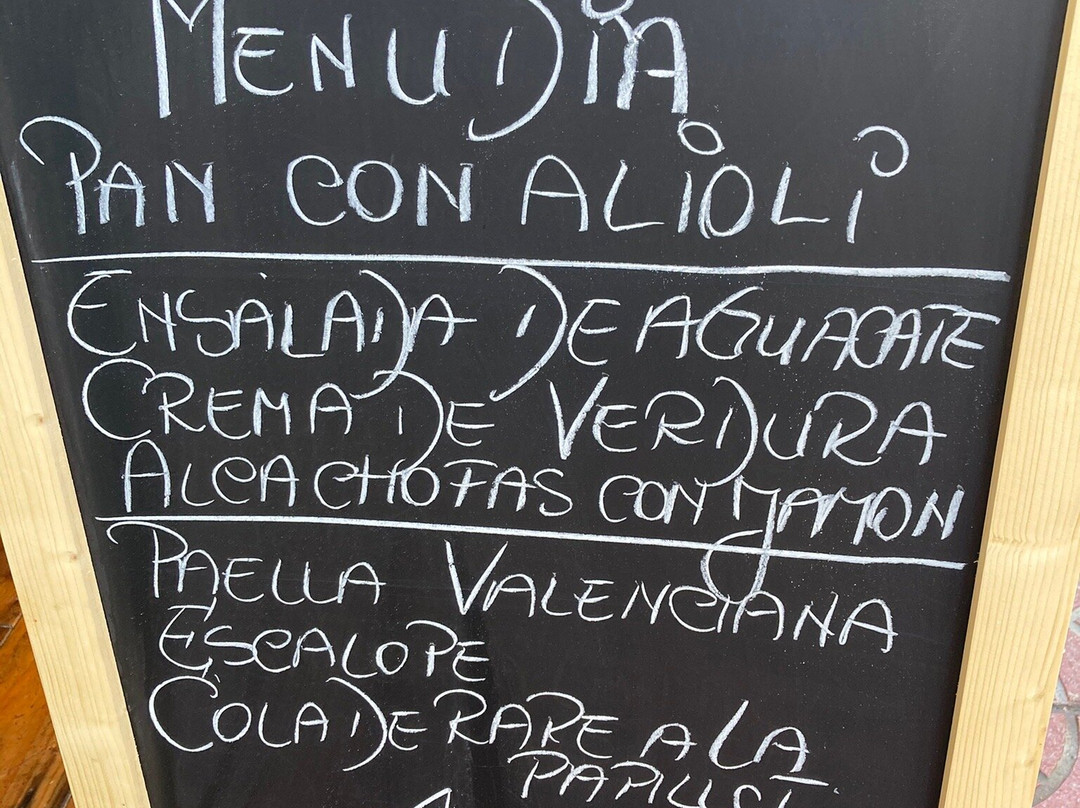 MENU DIA
PAN CON ALIOLI
ENSALADA DE AGUACATE
CREMA DE VERDURA
ALCACHOFAS CON JAMON
PAELLA VALENCIANA
ESCALOPE
COLA DE RAPE A LA